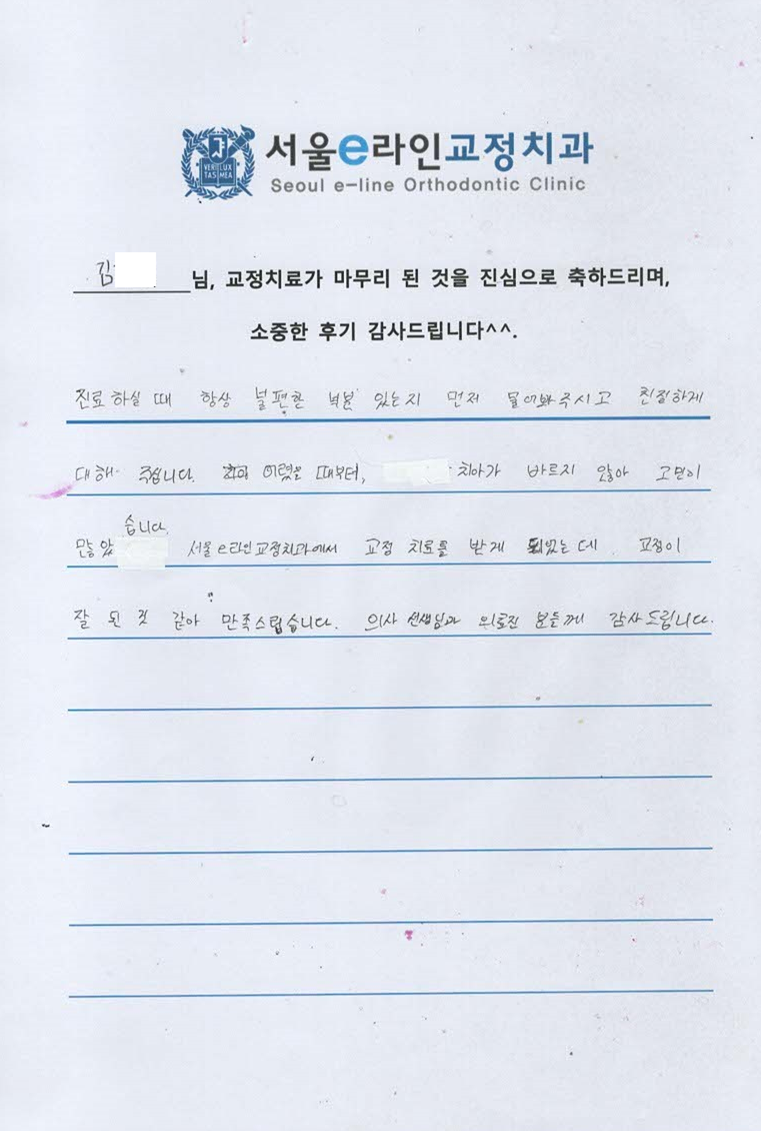 서울e라인교정치과
Seoul e-line Orthodontic Clinic
VERI LUX
TAS MEA
김 님, 교정치료가 마무리 된 것을 진심으로 축하드리며,
소중한 후기 감사드립니다^^.
진료하실 때 항상 불편한 부분 있는지 먼저 물어봐주시고 친절하게
대해 주십니다. 어렸을 때부터, 치아가 바르지 않아 고민이
많았습니다. 서울e라인교정치과에서 교정 치료를 받게 되었는데, 교정이
잘 된 것 같아 만족스럽습니다. 의사 선생님과 의료진 분들께 감사드립니다.